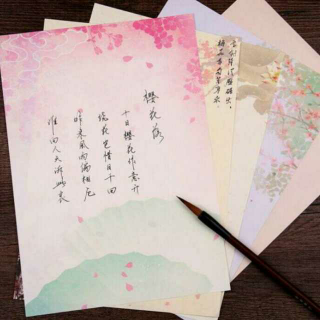 櫻花落
十日櫻花作意开
绕花岂惜日千回
昨来风雨偏相厄
谁向人天诉此哀